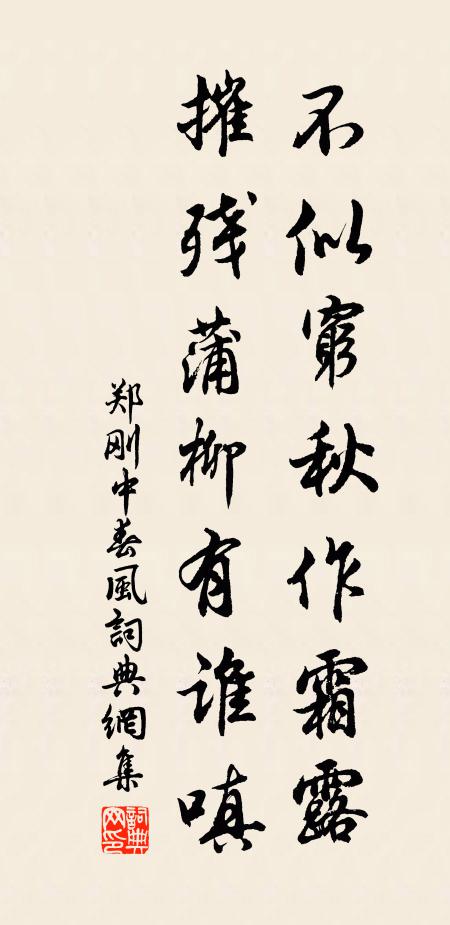 不似窮秋作霜露
摧残蒲柳有谁嗔
郑刚中春风詞典網集
詞典網印